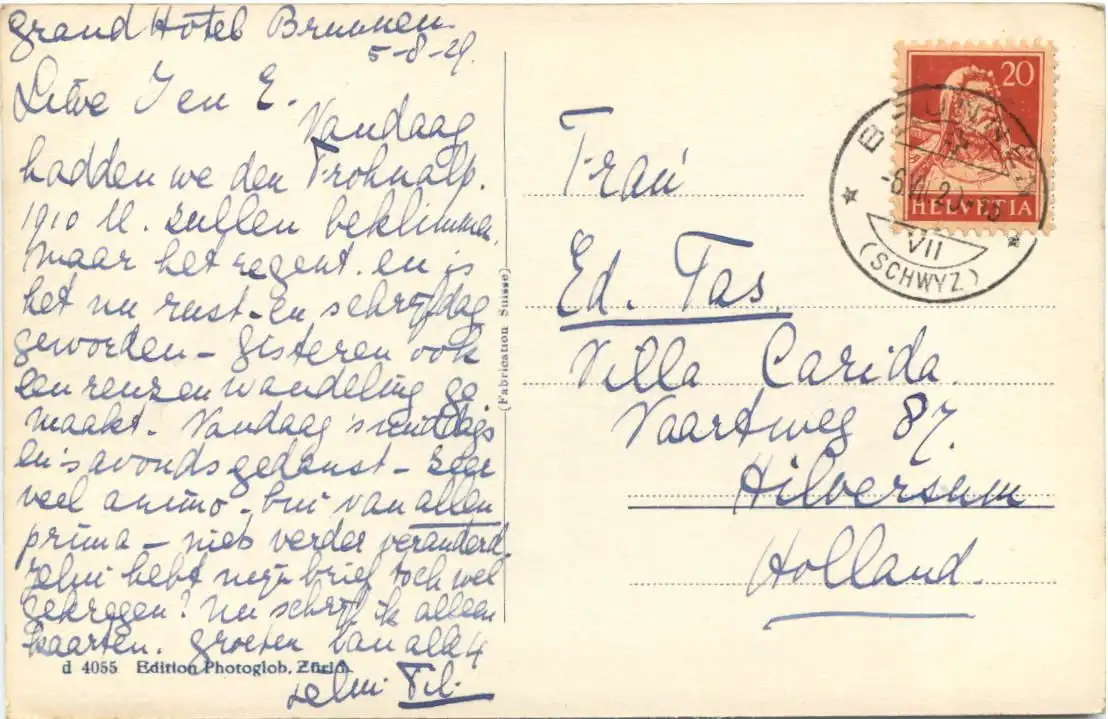 Grand Hotel Brunnen.
5-8-29.
Lieve J en E.
Vandaag
hadden we den Frohnalp.
1910 M. zullen beklimmen.
Maar het regent. en is
het nu rust-en schrijfdag
geworden - Gisteren ook
een reuzenwandeling ge
maakt. Vandaag 's middags
en 's avonds gedanst - Zeer
veel animo - bui van allen
prima - niets verder veranderd.
hebt mijn brief toch wel
gekregen? Nu schrijf ik alleen
kaarten. Groeten van alle 4
d 4055 Edition Photoglob, Zürich.
(Fabrication Suisse)
20
HELVETIA
BRUNNEN
VII
(SCHWYZ)
Frau
Ed. Tas.
Villa Carida.
Vaartweg 87.
Hilversum
Holland.